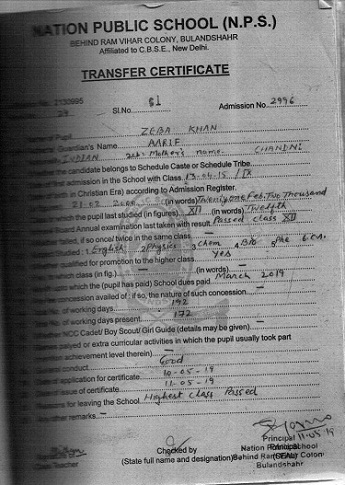 NATION PUBLIC SCHOOL (N.P.S.)
BEHIND RAM VIHAR COLONY, BULANDSHAHR
Affiliated to C.B.S.E., New Delhi.
TRANSFER CERTIFICATE
No. 2130995
29 Sl.No. 81 Admission No. 2996
of Pupil ZEBA KHAN
Guardian's Name AARIF
INDIAN Mother's name. CHANDNI
the candidate belongs to Schedule Caste or Schedule Tribe
first admission in the School with Class 13-04-15 / IX
(in Christian Era) according to Admission Register.
21-02-2000 (in words) Twenty one Feb. Two Thousand
which the pupil last studied (in figures) XII (in words) Twelfth
Board Annual examination last taken with result Passed class XII
failed, if so once/ twice in the same class
English Physics Chem Bio
for promotion to the higher class. Yes
which class (in fig.) — (in words) —
which the (pupil has paid) School dues paid March 2019
concession availed of : if so, the nature of such concession —
No. of working days 192
No. of working days present 172
NCC Cadet/ Boy Scout/ Girl Guide (details may be given)
played or extra curricular activities in which the pupil usually took part
achievement level therein) —
conduct Good
of application for certificate 10-05-19
of issue of certificate 11-05-19
Reasons for leaving the School Highest class Passed
other remarks —
Principal 11-05-19
Class Teacher
Checked by
(State full name and designation)
Nation School
Behind Ram Colony
Bulandshahr